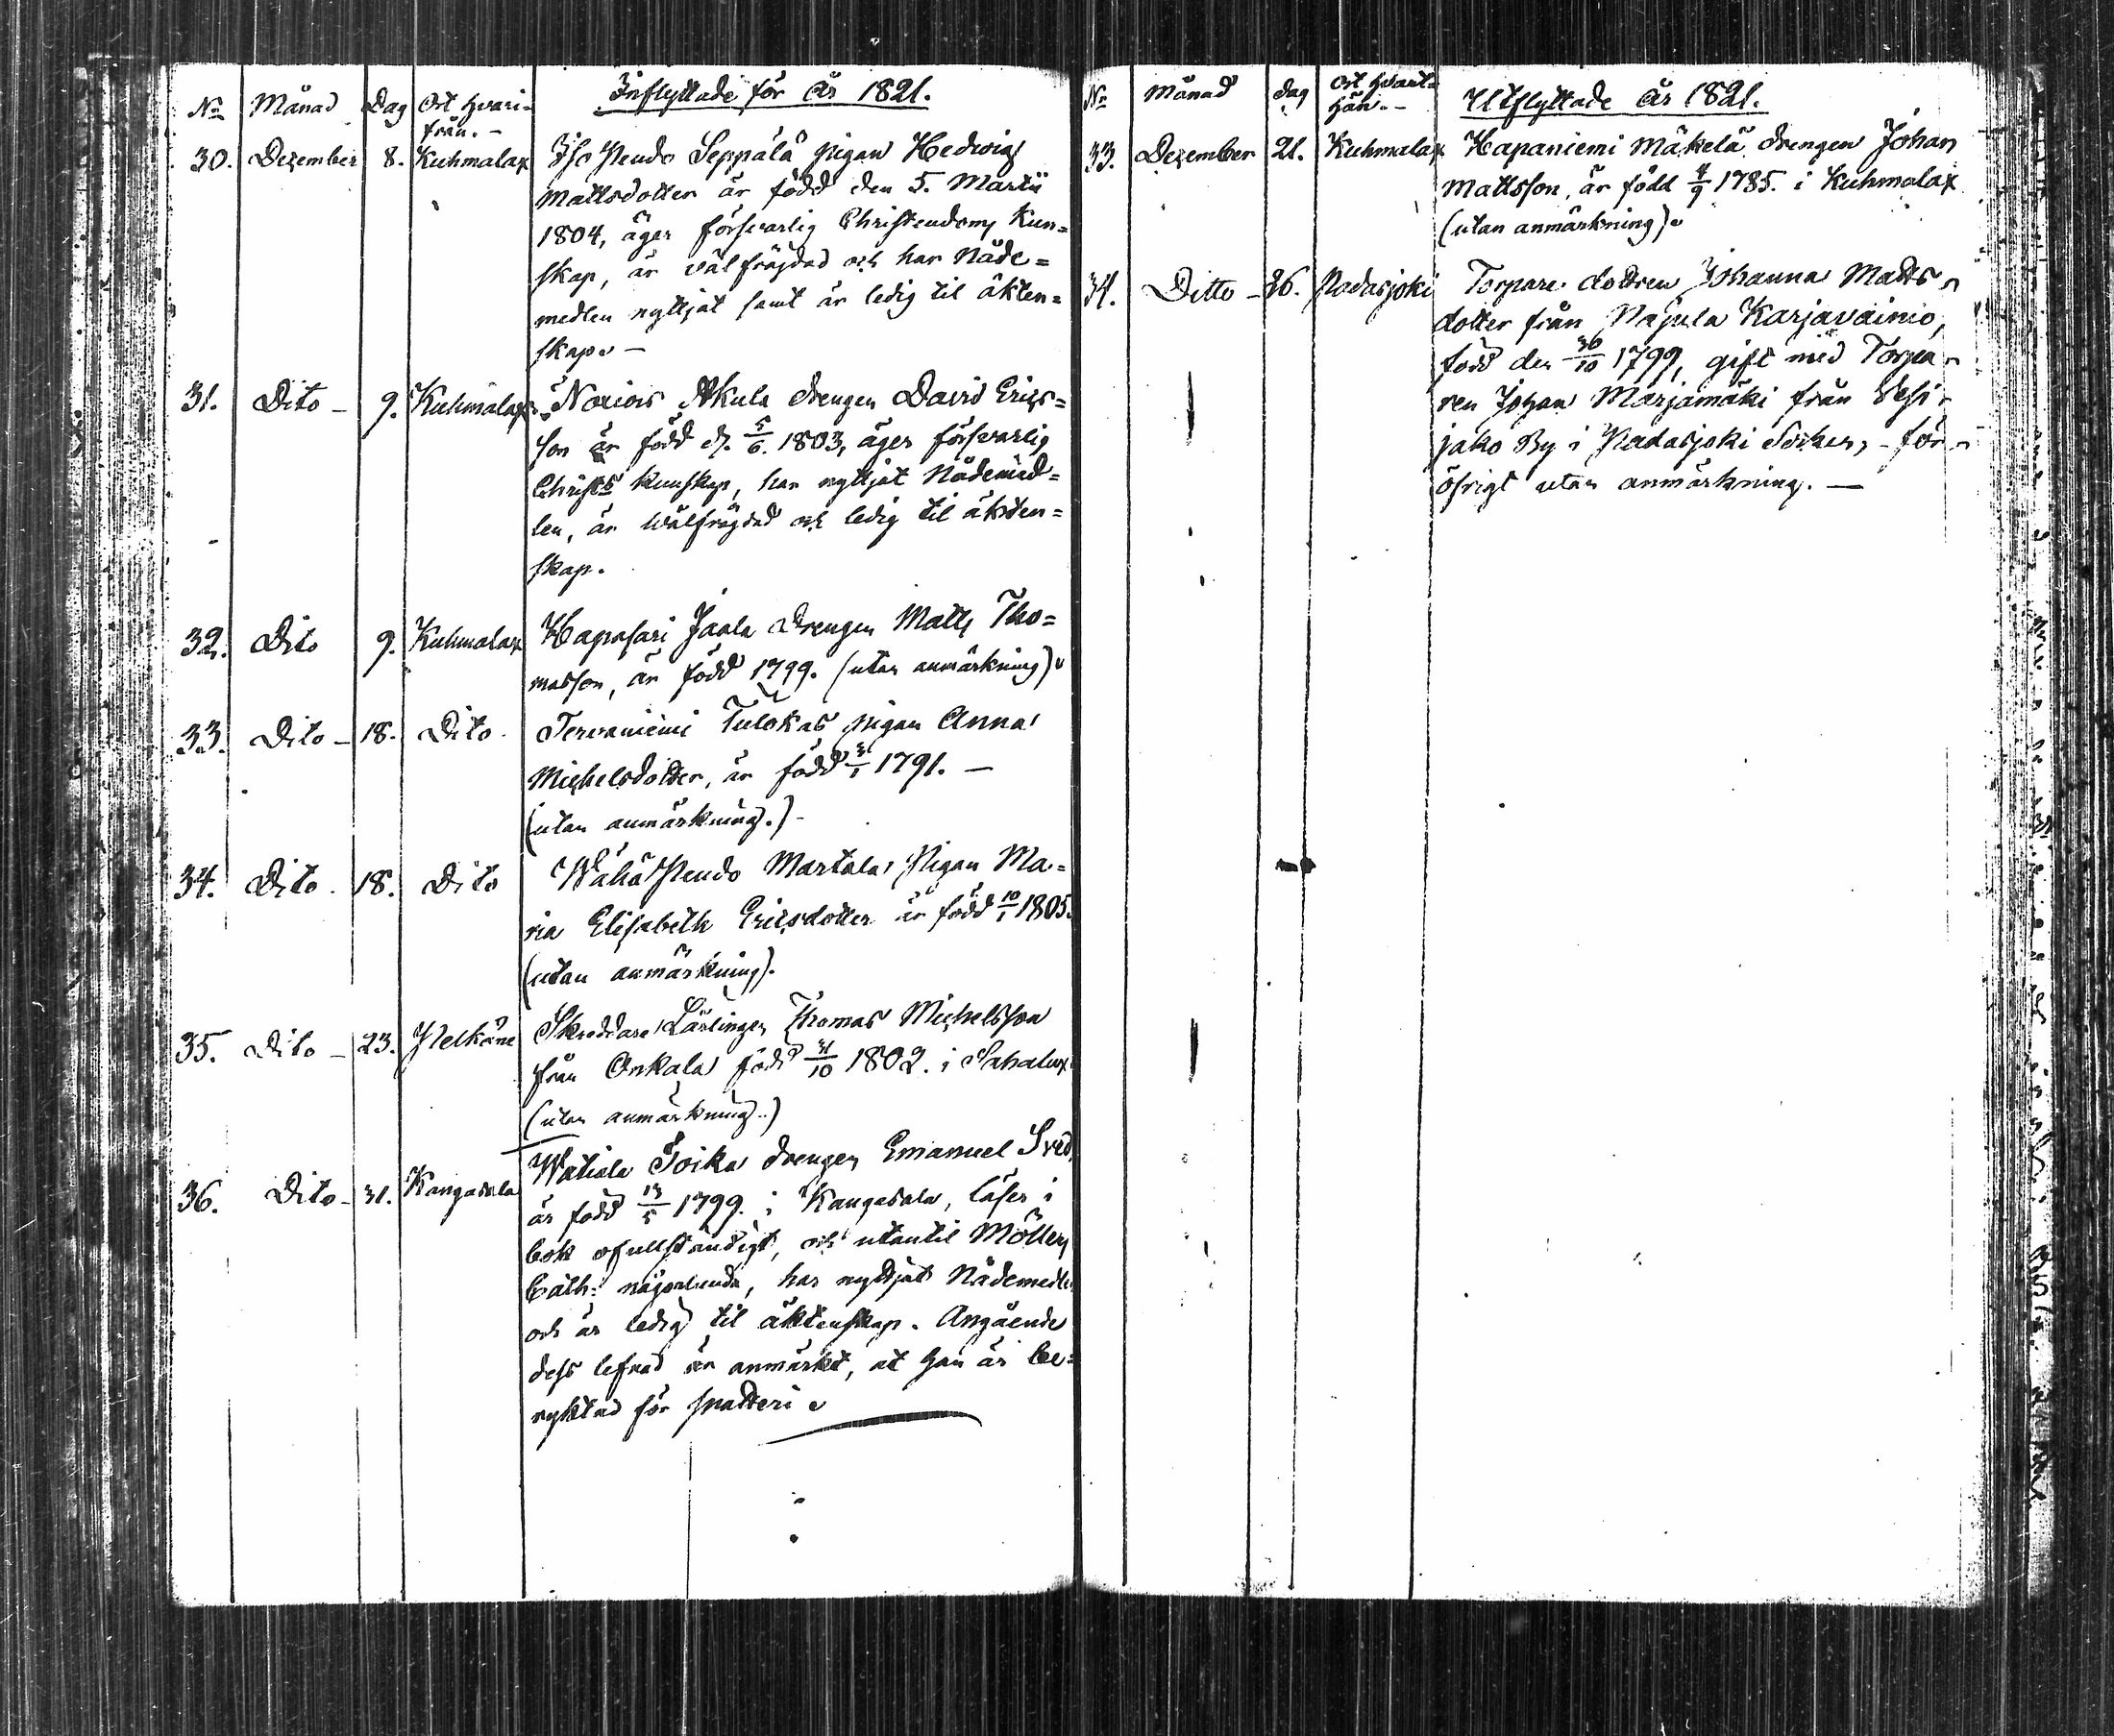 Inflyttade för År 1821.
No Månad Dag Ort hvari=
från. -
30. Dezember 8. Kuhmalax Iso Pendo Seppälä pigan Hedvig
Mattsdotter är född den 5. Martii
1804, äger försvarlig Christendoms Kun=
skap, är välfräjdad och har Nåde=
medlen nyttjat samt är ledig til äkten=
skap. -
31. Dito - 9. Kuhmalax Akula drengen David Erics=
son är född d. 5/6. 1803, äger försvarlig
Christs kunskap, har nyttjat Nådemed=
len, är wälfrägdad och ledig til äkten=
skap.
32. Dito 9. Kuhmalax Hapasari Jaala drengen Matts Tho=
masson, är född 1799. (utan anmärkning).
33. Dito - 18. Dito Tervaniemi Tulokas pigan Anna
Michelsdotter, är född 3/1 1791. -
(utan anmärkning.) -
34. Dito 18. Dito Wähä Pendo Martala Pigan Ma=
ria Elisabeth Ericsdotter är född 10/1 1805.
(utan anmärkning).
35. Dito - 23. Pelkäne Skreddare Lärlingen Thomas Michelsson
från Onkala född 31/10 1802. i Sahalax
(utan anmärkning..)
36. Dito - 31. Kangasala Watiala Toika drengen Emanuel Sved,
är född 13/5 1799. i Kangasala, läser i
bok ofullständigt, och utantil Möllers
Cath: någorlunda, har nyttjat Nådemedle
och är ledig til äktenskap. Angående
dess lefnad är anmärkt, at han är be=
ryktad för snatteri.
Utflyttade År 1821.
No Månad dag Ort hvart=
hän. -
33. Dezember 21. Kuhmalax Hapaniemi Mäkelä drengen Johan
Mattsson, är född 4/9 1785. i Kuhmalax
(utan anmärkning).
34. Ditto - 26. Padasjoki Torpare dottren Johanna Matts
dotter från Pajula Karjavainio,
född den 30/10 1799, gift med Torpa
ren Johan Marjamäki från Vesi
jako By i Padasjoki Socken, - för
öfrigt utan anmärkning. -